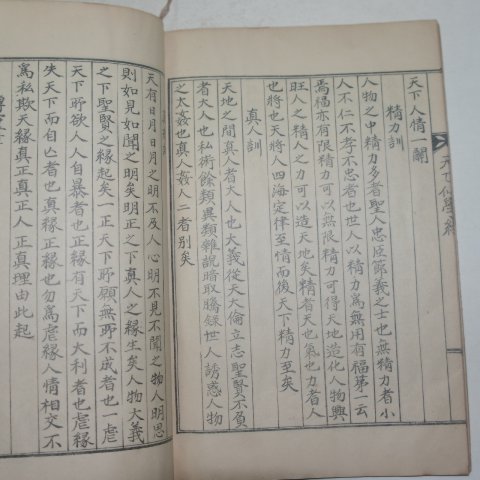 天下人情一關
精力訓
人物之中精力多者聖人忠臣節義之士也無精力者小
人不仁不孝不忠者也世人以精力爲無用有福第一云
焉福亦有限精力可以無限精力可得天地造化人物興
旺人之精人之力可以造天地矣精者天也氣也力者人
也將也天將人四海定律至情而後天下精力至矣
眞人訓
天地之間眞人者大人也大義從天大倫立志聖賢不負
者大人也私術餘類異類雜說暗取騰錄世人誘惑人物
之太姦也眞人姦人二者別矣
天有日月日月之明不及人心明不見不聞之物人明思
則如見如聞之明矣明正之下眞人之緣生矣人物大義
之下聖賢之緣起矣一正天下所願無所不成者也一虛
天下所欲人人自暴者也正緣有天下而大利者也虛緣
失天下而自亡者也眞緣正緣也勿爲虛緣人情相交不
爲私欺天緣眞正眞正人正眞理由此起